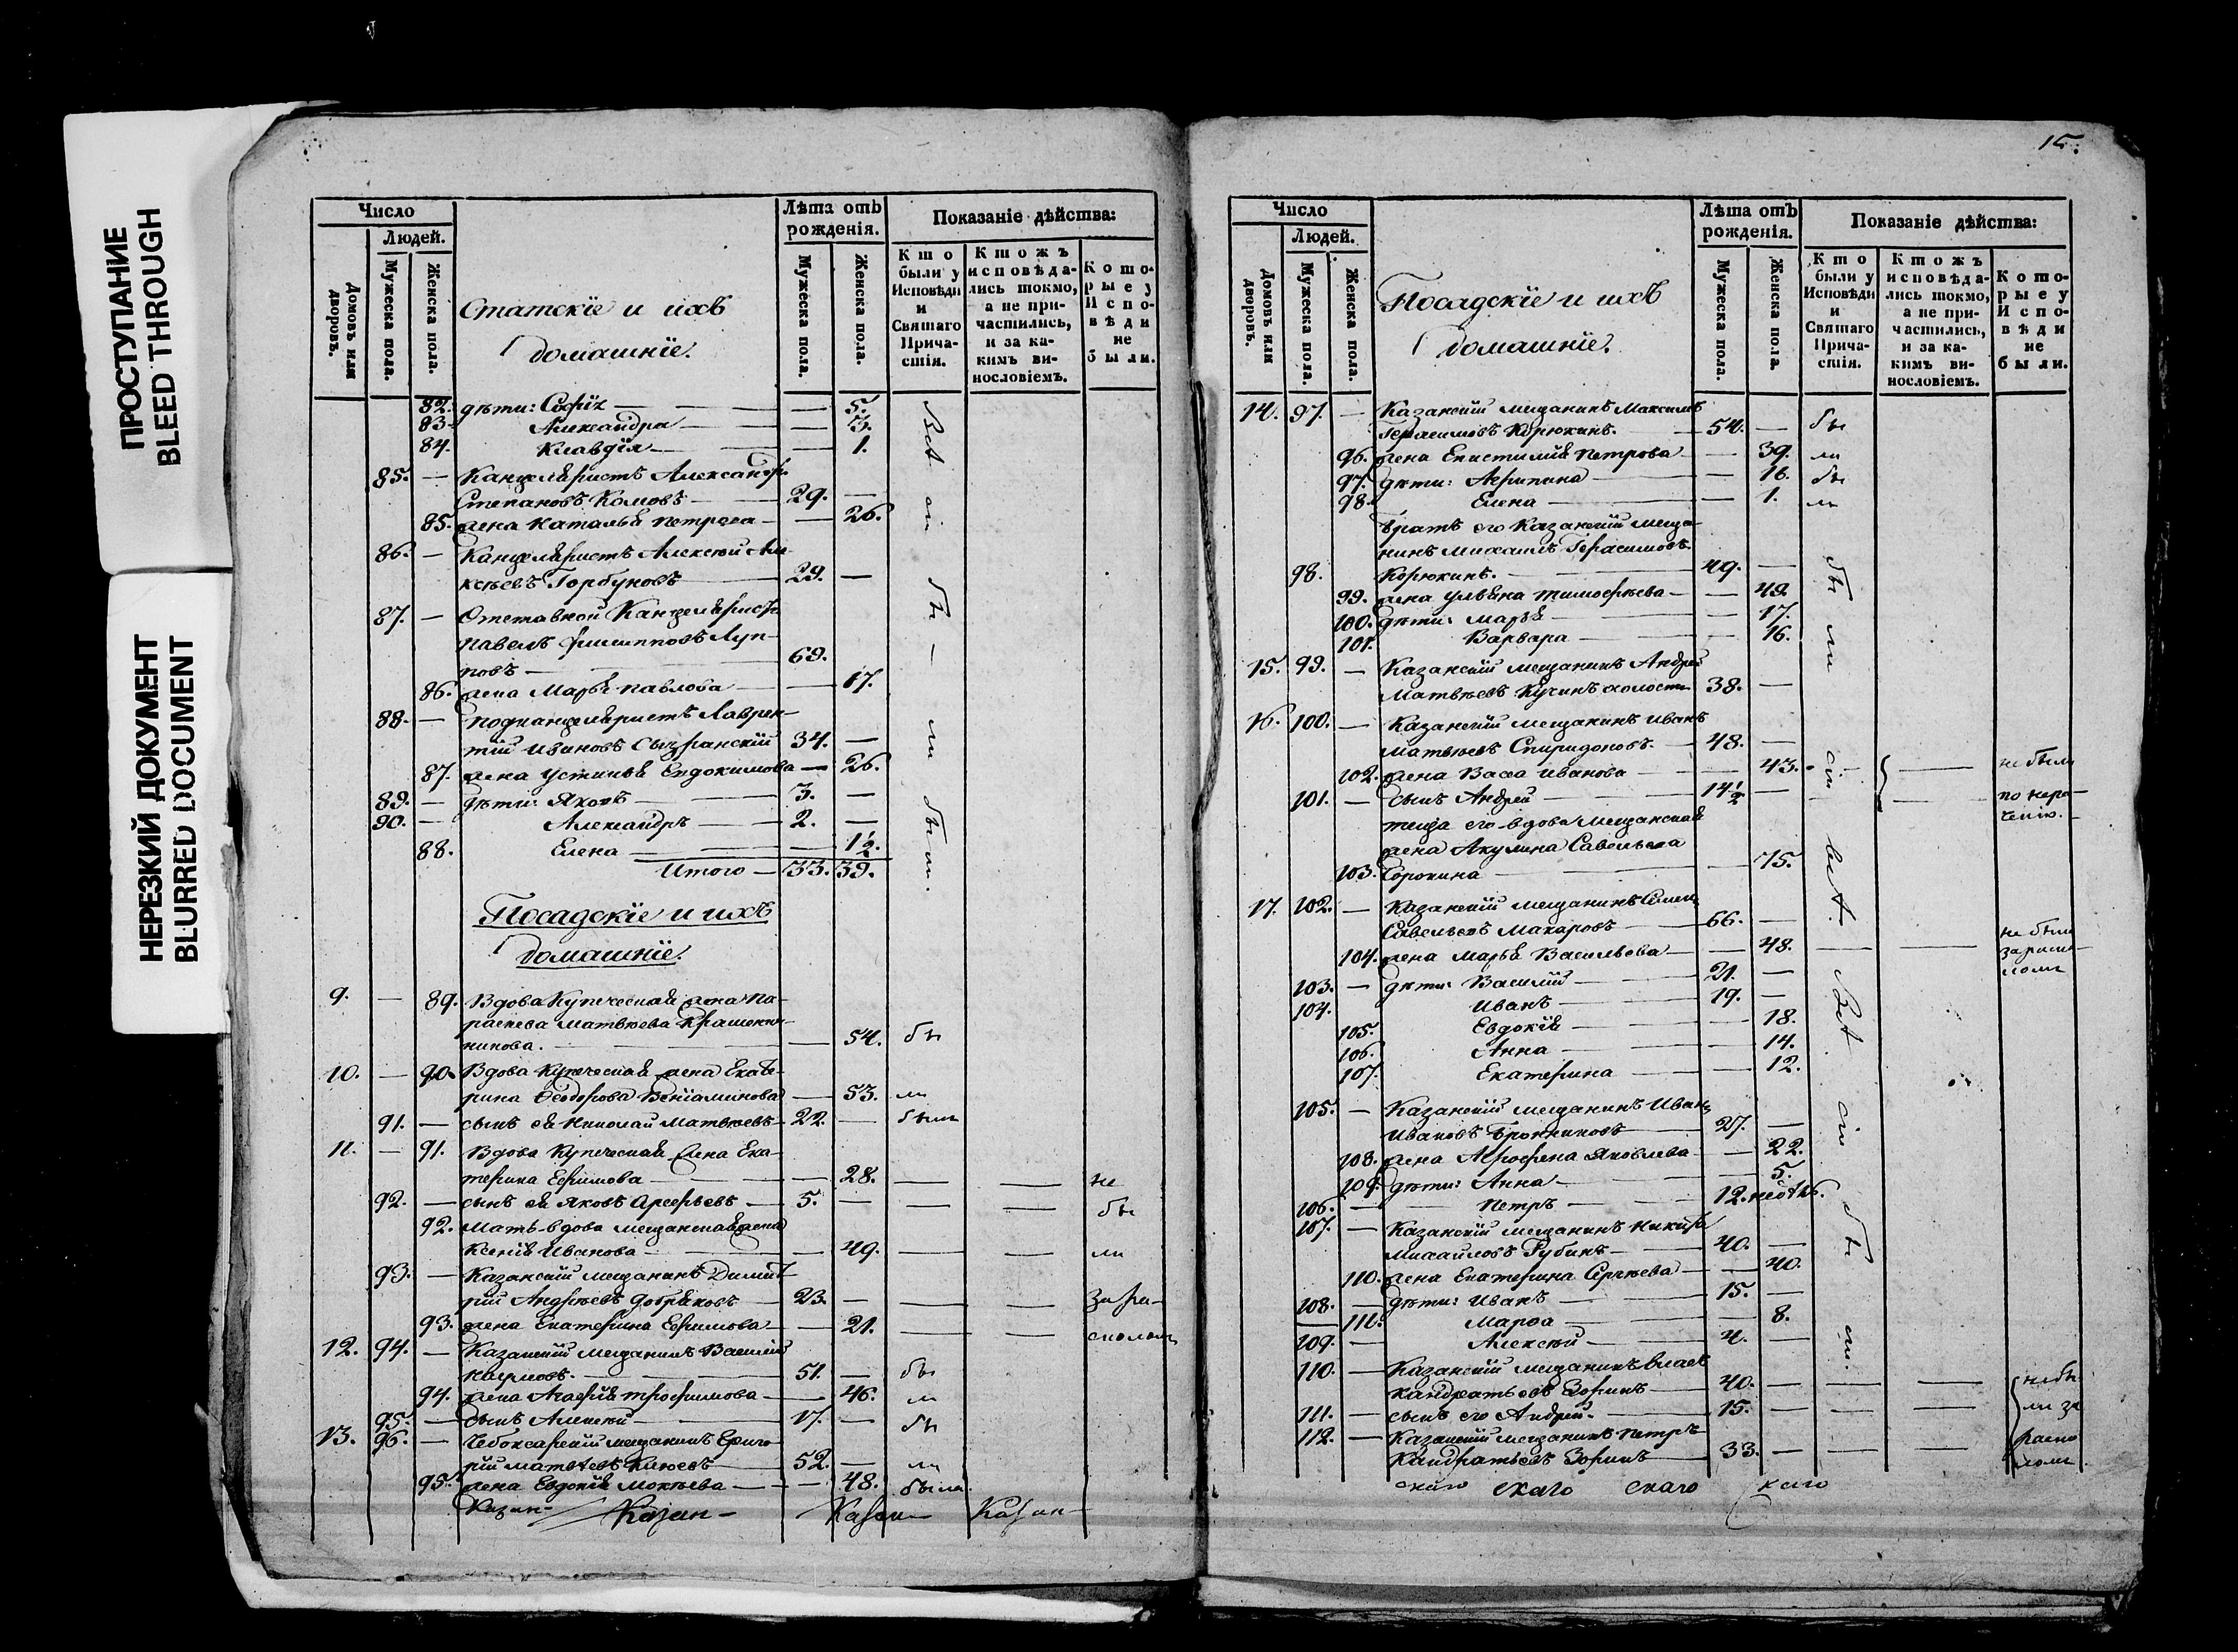 ПРОСТУПАНИЕ
BLEED THROUGH
НЕРЕЗКИЙ ДОКУМЕНТ
BLURRED DOCUMENT
Число
Людей.
Домовъ или дворовъ.
Мужеска пола.
Женска пола.
Статскіе и ихъ
домашніе.
Лѣта отъ рожденія.
Мужеска пола.
Женска пола.
Показаніе дѣйства:
Кто были у Исповѣди и Святаго Причастія.
Ктожъ исповѣдались токмо, а не причастились, и за какимъ винословіемъ.
Которые у Исповѣди не были.
82. дѣти: Софія — 5.
83. Александра — 3.
84. Клавдія — 1.
85. — Канцеляристъ Александръ
Степановъ Комовъ — 29. —
85. жена Наталья Петрова — 26.
86. — Канцеляристъ Алексѣй Але
ксѣевъ Горбуновъ — 29. —
87. — Отставной Канцеляристъ
Павелъ Филипповъ Луп-
повъ — 69.
86. жена Марья Павлова — 67.
88. — Подканцеляристъ Лаврен-
тій Ивановъ Сызранскій 34. —
87. жена Устинья Евдокимова — 26.
89. — дѣти: Яковъ — 3. —
90. — Александръ — 2. —
88. Елена — 1½.
Итого — 33. 39.
Всѣ сіи бы — ли бы ли.
Посадскіе и ихъ
домашніе.
9. — 89. Вдова Купеческая жена Па-
раскева Матвѣева Крашенин-
никова. — 54. бы
10. — 90. Вдова Купеческая жена Екате-
рина Ѳеодорова Веніаминова — 53. ли
91. — сынъ ея Николай Матвѣевъ — 22. — были
11. — 91. Вдова Купеческая жена Ека-
терина Ефимова — 28. — — не
92. — сынъ ея Яковъ Арефьевъ — 5. — — — бы
92. Мать-вдова мещанская жена
Ксенія Иванова — 49. — — ли
93. — Казанскій мещанинъ Димит-
рій Андреевъ Добряковъ — 23. — — — за ра-
93. жена Екатерина Ефимова — 21. — — сколомъ
12. 94. — Казанскій мещанинъ Василій
Наумовъ. — 51. — бы
94. жена Агафія Трофимова — 46. ли
95. — сынъ Алексѣй — 17. — бы
13. 96. — Чебоксарскій мещанинъ Григо
рій Матвѣевъ Клюевъ — 52. — ли
95. жена Евдокія Мокѣева — 48. была.
Казан- Казан- Казан- Казан-
15.
Число
Людей.
Домовъ или дворовъ.
Мужеска пола.
Женска пола.
Посадскіе и ихъ
домашніе.
Лѣта отъ рожденія.
Мужеска пола.
Женска пола.
Показаніе дѣйства:
Кто были у Исповѣди и Святаго Причастія.
Ктожъ исповѣдались токмо, а не причастились, и за какимъ винословіемъ.
Которые у Исповѣди не были.
14. 97. — Казанскій мещанинъ Максимъ
Герасимовъ Корюкинъ. — 54. — бы
96. жена Епистимія Петрова — 39. ли
97. дѣти: Агрипина — 16. бы
98. Елена — 1. ли
братъ его Казанскій меща-
нинъ Михаилъ Герасимовъ
98. Корюкинъ. — 49. —
99. жена Ульяна Тимофѣева — 49.
100. дѣти: Марья — 17.
101. Варвара — 16.
15. 99. — Казанскій мещанинъ Андрей
Матвѣевъ Кучинъ холостъ 38. —
16. 100. — Казанскій мещанинъ Иванъ
Матвѣевъ Спиридоновъ. — 48. —
102. жена Васса Иванова — 43. — — не были
101. — сынъ Андрей — 14½ — — по нера-
тенію.
теща его-вдова мещанская
жена Акулина Савельева
103. Сорокина — 75.
17. 102. — Казанскій мещанинъ Семенъ
Савельевъ Макаровъ — 66. —
104. жена Марья Васильева — 48. — — не была за раско-
ломъ
103. — дѣти: Василій — 21. —
104. Иванъ — 19. —
105. Евдокія — 18.
106. Анна — 14.
107. Екатерина — 12.
105. — Казанскій мещанинъ Иванъ
Ивановъ Бронниковъ — 27. —
108. жена Агрофена Яковлева — 22.
109. дѣти: Анна — 5.
106. — Петръ — 12. недѣль.
107. — Казанскій мещанинъ Никита
Михайловъ Рубинъ — 40. —
110. жена Екатерина Сергѣева — 40.
108. — дѣти: Иванъ — 15. —
111. Марѳа — 8.
109. — Алексѣй — 4. —
110. — Казанскій мещанинъ Власъ
Кандратьевъ Зоринъ — 40. — — — не бы
111. — сынъ его Андрей. — 15. — — — ли за
112. — Казанскій мещанинъ Петръ
Кандратьевъ Зоринъ — 33. — — — раско
ломъ.
бы ли сіи всѣ. Всѣ сіи бы ли.
скаго скаго скаго скаго